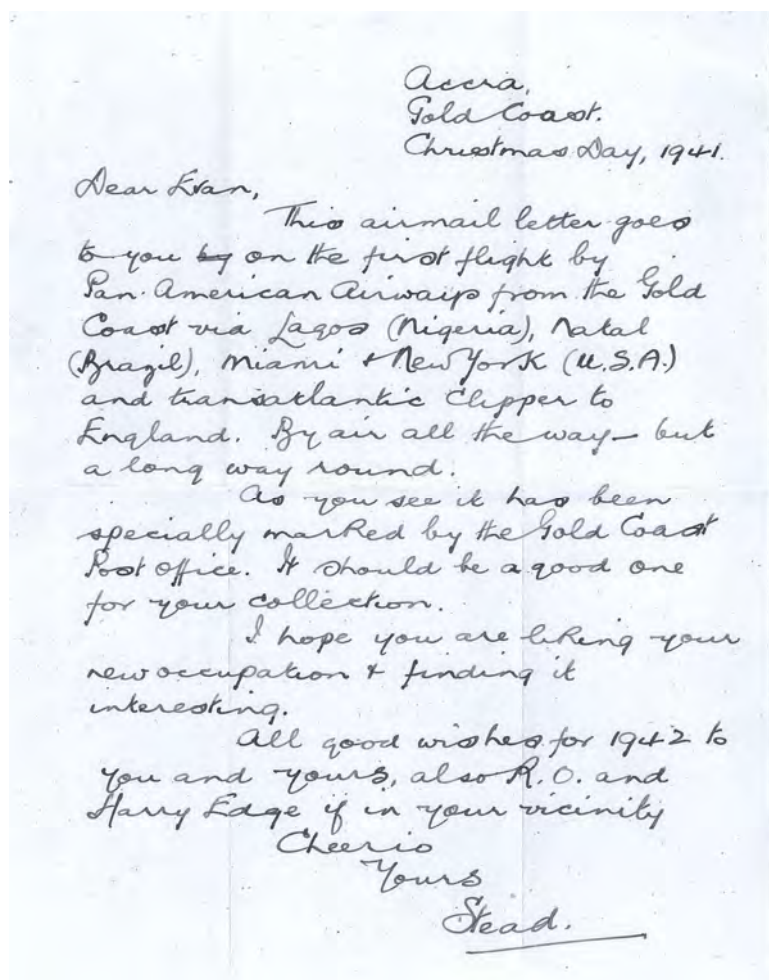 Accra,
Gold Coast.
Christmas Day, 1941.
Dear Evan,
This airmail letter goes
to you by on the first flight by
Pan-American Airwaips from the Gold
Coast via Lagos (Nigeria), Natal
(Brazil), Miami & New York (U.S.A.)
and transatlantic Clipper to
England. By air all the way – but
a long way round.
As you see it has been
specially marked by the Gold Coast
Post office. It should be a good one
for your collection.
I hope you are liking your
new occupation & finding it
interesting.
All good wishes for 1942 to
you and yours, also R.O. and
Harry Edge if in your vicinity
Cheerio
Yours
Stead.